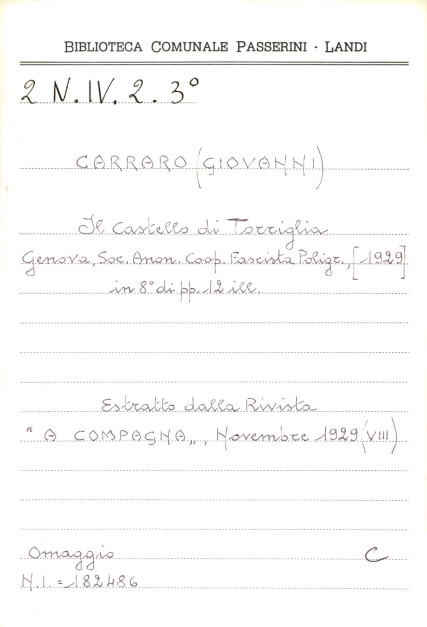 BIBLIOTECA COMUNALE PASSERINI - LANDI
2 N. IV. 2. 3°
CARRARO (GIOVANNI)
Il Castello di Torriglia
Genova, Soc. Anon. Coop. Fascista Poligr., [1929]
in 8° di pp. 12 ill.
Estratto dalla Rivista
"A COMPAGNA„, Novembre 1929 (VIII)
Omaggio C
N.I. = 182486